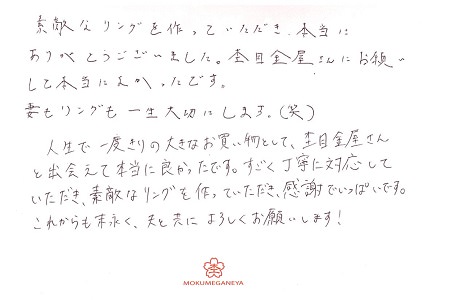 素敵なリングを作っていただき、本当に
ありがとうございました。杢目金屋さんにお願い
して本当によかったです。
妻もリングも一生大切にします。(笑)
人生で一度きりの大きなお買い物として、杢目金屋さん
と出会えて本当に良かったです。すごく丁寧に対応して
いただき、素敵なリングを作っていただき、感謝でいっぱいです。
これからも末永く、夫と共によろしくお願いします!
MOKUMEGANEYA